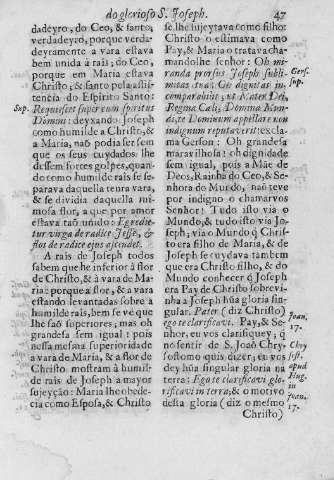 do glorioso S. Joseph. 47
dadeyro, do Ceo, & santo,
verdadeyro, porque verda-
deyramente a vara estava
bem unida à rais; do Ceo,
porque em Maria estava
Christo; & santo pela assis-
tencia do Espirito Santo:
Sup. Requiescet super eum spiritus
Domini: deyxando Joseph
como humilde a Christo, &
a Maria, naõ podia ser sem
que os seus cuydados lhe
dessem fortes golpes, quan-
do como humilde rais se se-
parava daquella tenra vara,
& se dividia daquella mi-
mosa flor, a que por amor
estava taõ unido: Egredie-
tur virga de radice Jesse, &
flos de radice ejus ascendet.
A rais de Joseph todos
sabem que he inferior à flor
de Christo, & à vara de Ma-
ria: porque a flor, & a vara
estando levantadas sobre a
humilde rais, bem se vé que
lhe saõ superiores; mas oh
grandesa sem igual! pois
nesta mesma superioridade
a vara de Maria, & a flor de
Christo mostram à humil-
de rais de Joseph a mayor
sujeyçaõ: Maria lhe obede-
cia como Esposa, & Christo
se lhe sujeytava como filho:
Christo o estimava como
Pay, & Maria o tratava cha-
mandolhe senhor: Oh mi-
randa prorsus Joseph subli-
Gers. sup.
mitas tua! Oh dignitas in-
comparabilis, ut Mater Dei,
Regina Cæli, Domina Mun-
di, te Dominum appellare non
indignum reputaverit: excla-
ma Gerson: Oh grandesa
maravilhosa! oh dignidade
sem igual, pois a Mãe de
Deos, Rainha do Ceo, & Se-
nhora do Mundo, naõ teve
por indigno o chamarvos
Senhor! Tudo isto via o
Mundo, & tudo isto via Jo-
seph; via o Mundo q̃ Chri-
sto era filho de Maria, & de
Joseph se cuydava tambem
que era Christo filho, & do
Mundo conhecer q̃ Joseph
era Pay de Christo sobrevi-
nha a Joseph hũa gloria sin-
gular. Pater (diz Christo)
Joan. 17.
ego te clarificavi. Pay, & Se-
nhor, eu vos clarifiquey; q̃
no sentir de S. Joaõ Chry-
Chry
sostomo quis dizer; eu vos
sost. apud
dey hũa singular gloria na
Hug. in
terra: Ego te clarificavi glo-
rificavi in terra; & o motivo
Joan.
desta gloria (diz o mesmo
17.
Christo)